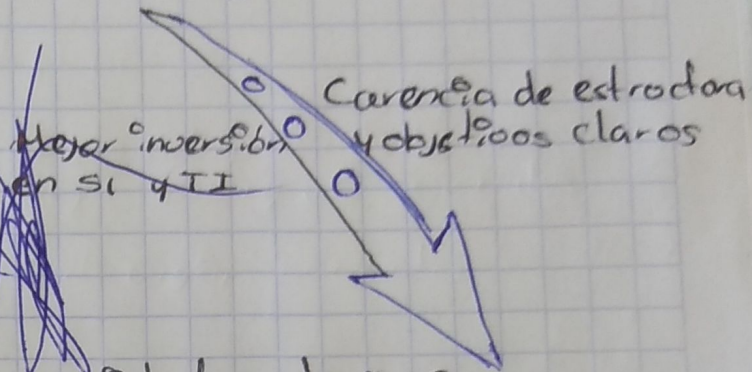 Carencia de estructura
y objetivos claros
Mejor inversión
en SI y TI